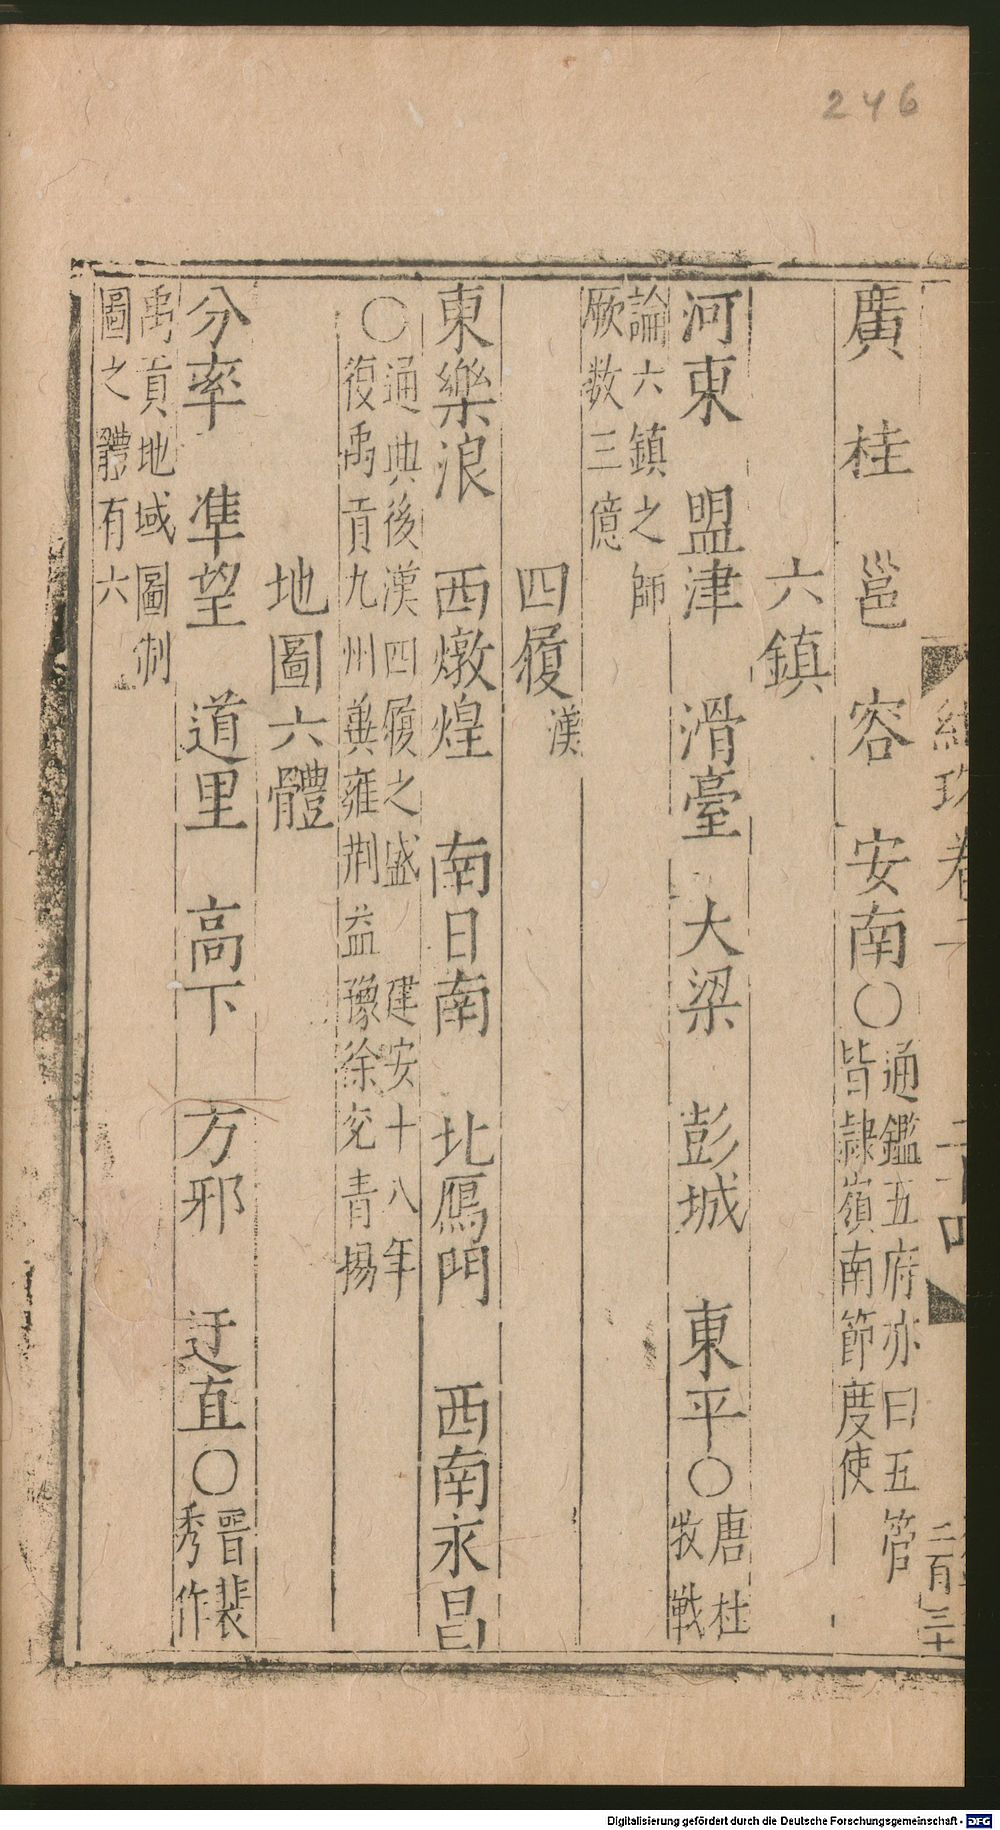 246
廣 桂 邕 容 安南〇通鑑五府亦曰五管
皆隷嶺南節度使
六鎮
河東 盟津 滑臺 大梁 彭城 東平〇唐杜
牧戰
論六鎮之師
厥数三億
四履漢
東樂浪 西燉煌 南日南 北鴈門 西南永昌
〇通典後漢四履之盛 建安十八年
復禹貢九州兾雍荆益豫徐兖青揚
地圖六體
分率 準望 道里 高下 方邪 迂直〇晉裴
秀作
禹貢地域圖制
圖之體有六
卷 二十四
二百三十
Digitalisierung gefördert durch die Deutsche Forschungsgemeinschaft - DFG